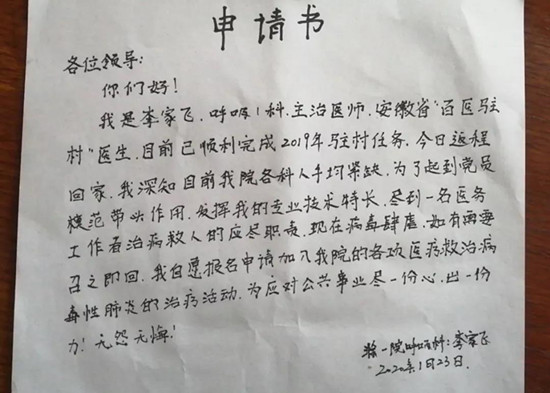 申请书
各位领导:
你们好!
我是李家飞,呼吸1科,主治医师,安徽省“百医驻
村”医生,目前已顺利完成2019年驻村任务,今日返程
回家,我深知目前我院各科人手均紧缺,为了起到党员
模范带头作用,发挥我的专业技术特长,尽到一名医务
工作者治病救人的应尽职责,现在病毒肆虐,如有需要
召之即回,我自愿报名申请加入我院的各项医疗救治病
毒性肺炎的治疗活动,为应对公共事业尽一份心,出一份
力!无怨无悔!
一院呼吸科:李家飞
2020年1月23日.